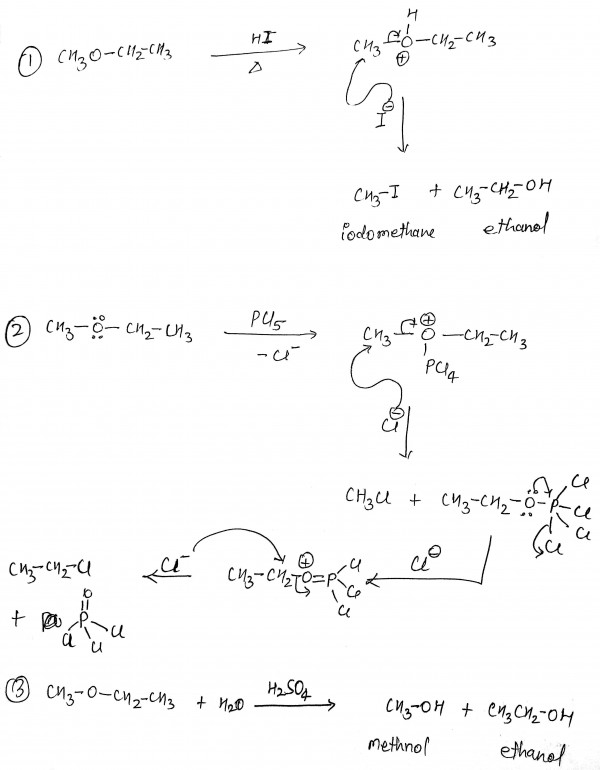 ① CH3O-CH2-CH3 HI Δ CH3-O-CH2-CH3
H
⊕
I⊖
CH3-I + CH3-CH2-OH
iodomethane ethanol
② CH3-O-CH2-CH3 PCl5 -Cl⁻ CH3-O-CH2-CH3
⊕
PCl4
Cl⊖
CH3Cl + CH3-CH2-O-P Cl Cl Cl Cl
CH3-CH2-Cl Cl⁻ CH3-CH2-O=P Cl Cl Cl Cl⊖
⊕
+ O=P Cl Cl Cl
③ CH3-O-CH2-CH3 + H2O H2SO4 CH3-OH + CH3CH2-OH
methnol ethanol